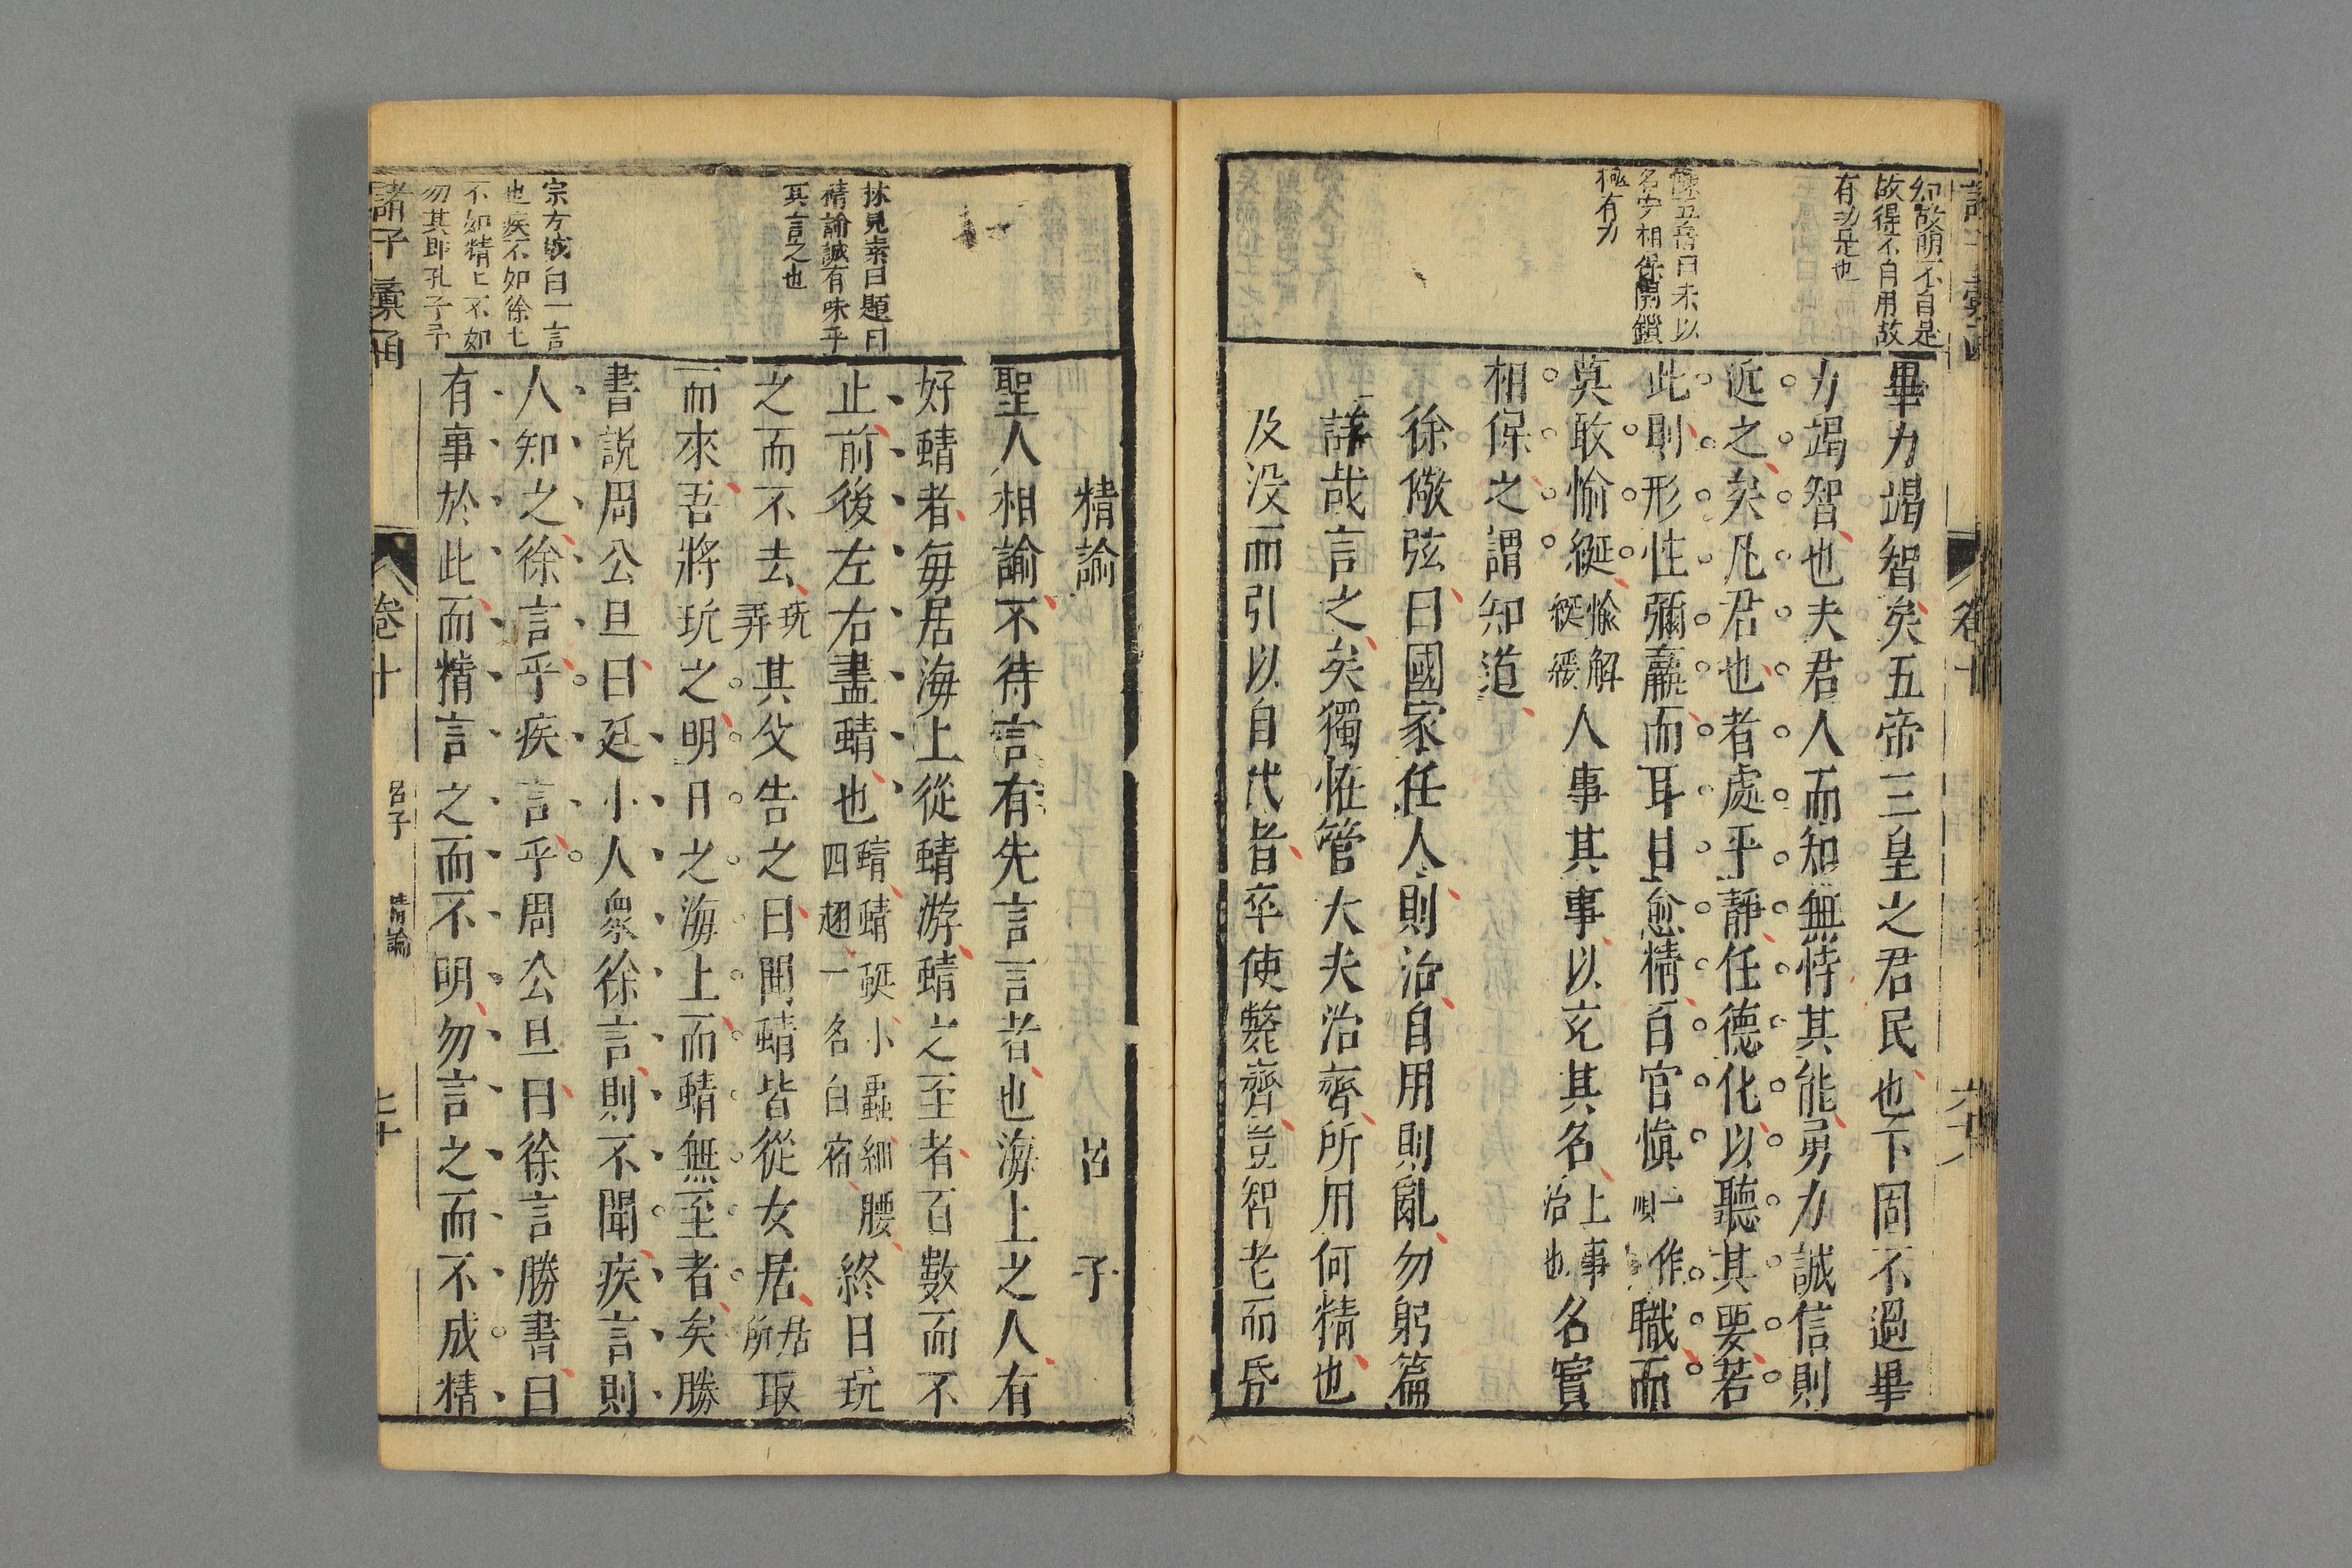 知故明不自是
故得不自用故
有功是也
五嶽曰未以
名实相保関鎖
極有力
畢力竭智矣五帝三皇之君民也下固不過畢
力竭智也夫君人而知無恃其能勇力誠信則
近之矣凡君也者處乎靜任德化以聽其要若
此則形性彌羸而耳目愈精百官愼一作順職而
莫敢愉綖愉解綖緩人事其事以充其名上事治也名實
相保之謂知道
徐儆弦曰國家任人則治自用則亂勿躬篇
詳哉言之矣獨恠管大夫治齊所用何精也
及没而引以自代者卒使斃齊豈智老而昏
精諭 呂子
林見素曰題曰
精諭誠有味乎
其言之也
聖人相諭不待言有先言言者也海上之人有
好蜻者每居海上從蜻游蜻之至者百數而不
止前後左右盡蜻也蜻蜻蜓小蟲細腰四翅一名白宿終日玩
之而不去玩弄其父告之曰聞蜻皆從女居居所取
而來吾將玩之明日之海上而蜻無至者矣勝
宗方城曰一言
也疾不如徐七
不如精七不如
勿其即孔子予
書説周公旦曰廷小人衆徐言則不聞疾言則
人知之徐言乎疾言乎周公旦曰徐言勝書曰
有事於此而精言之而不明勿言之而不成精
諸子彙函 卷十 呂子 精諭 七十